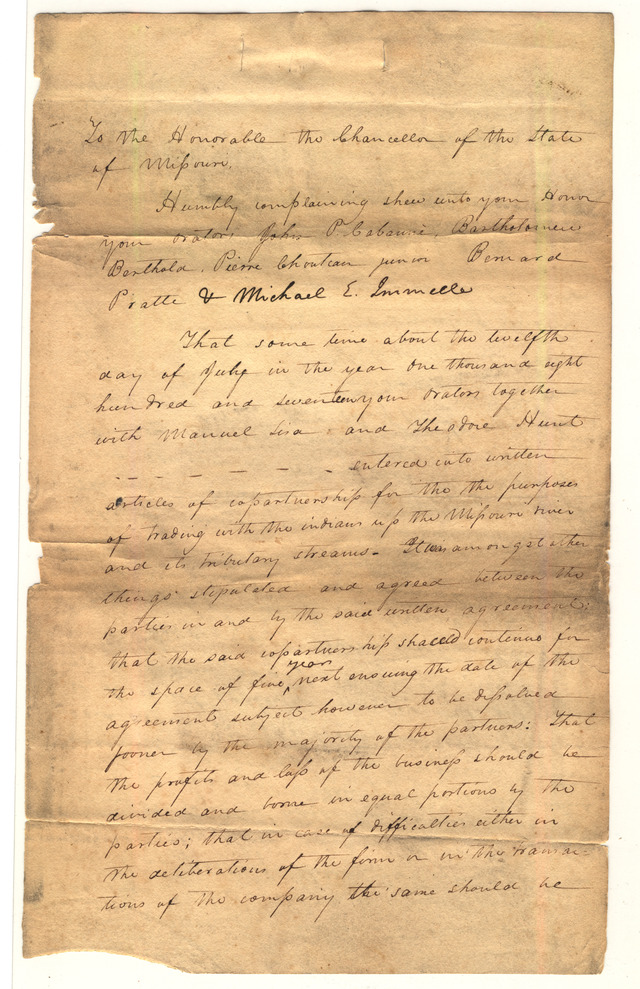 To the Honorable the Chancellor of the State
of Missouri.
Humbly complaining shew unto your Honor
your orators John P. Cabanné, Bartholomew
Berthold, Pierre Chouteau junior Bernard
Pratte & Michael E. Immelle
That some time about the twelfth
day of July in the year one thousand eight
hundred and seventeen your orators together
with Manuel Lisa and Theodore Hunt
entered into written
articles of copartnership for the the purposes
of trading with the indians up the Missouri river
and its tributary streams. It was amongst other
things stipulated and agreed between the
parties in and by the said written agreement:
that the said copartnership should continue for
the space of five years next ensuing the date of the
agreement subject however to be dissolved
sooner by the majority of the partners: That
the profits and loss of the business should be
divided and borne in equal portions by the
parties; that in case of difficulties either in
the deliberations of the firm or in the transac-
tions of the company the same should be